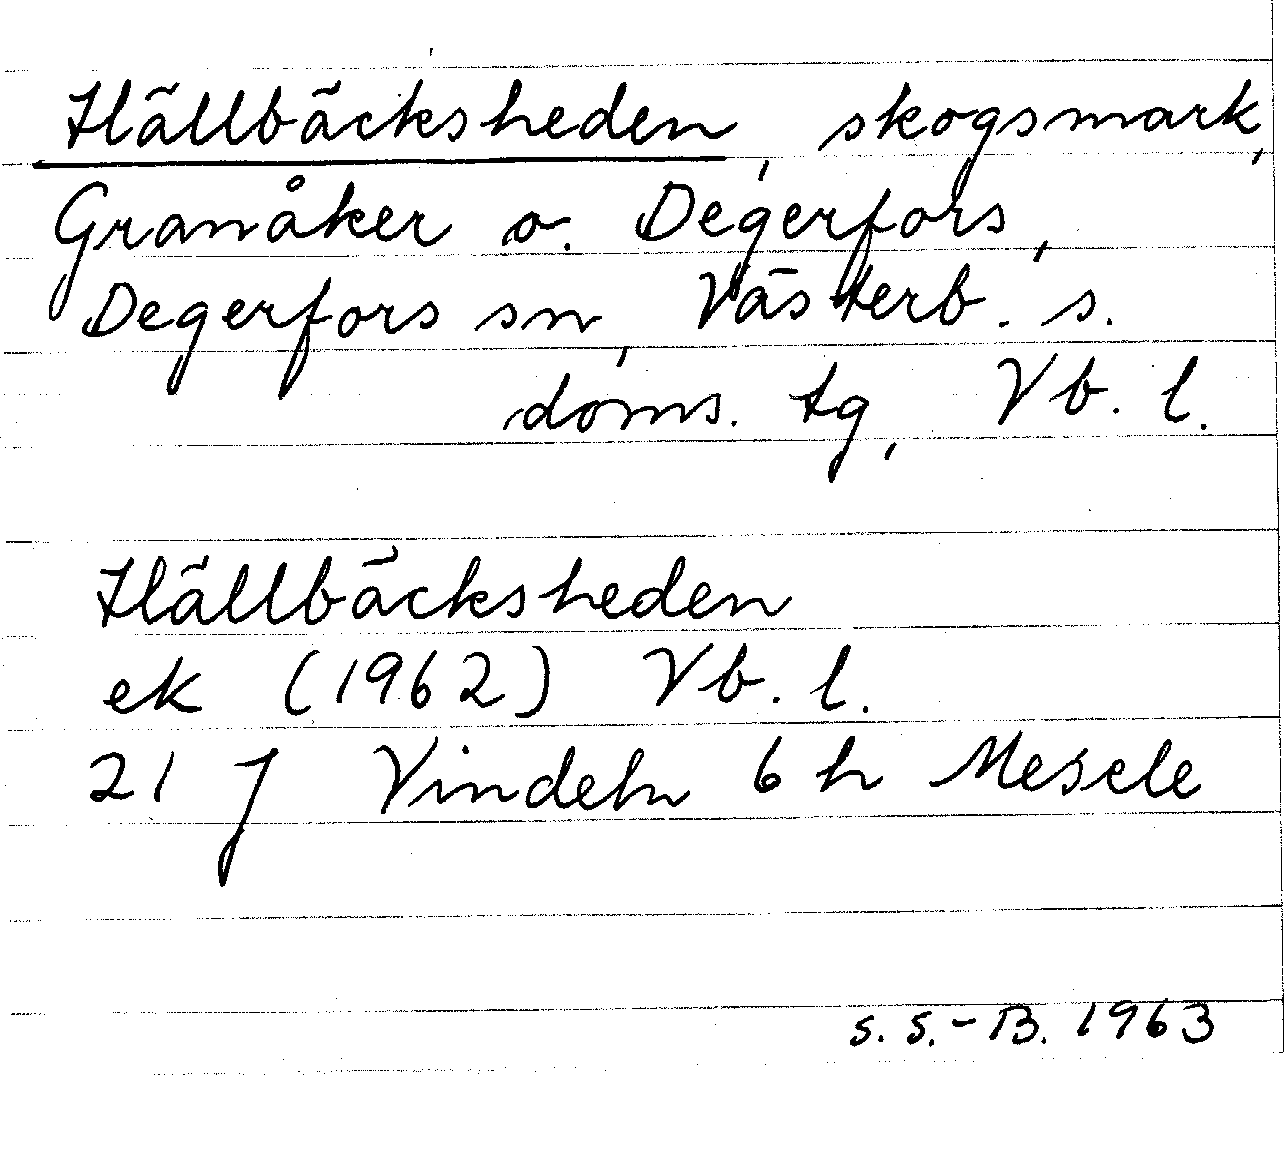 Hällbäcksheden, skogsmark,
Granåker o. Degerfors,
Degerfors sn, Västerb. s.
doms. tg, Vb. l.
Hällbäcksheden
ek (1962) Vb. l.
21 J Vindeln 6 h Mesele
S. S.-B. 1963